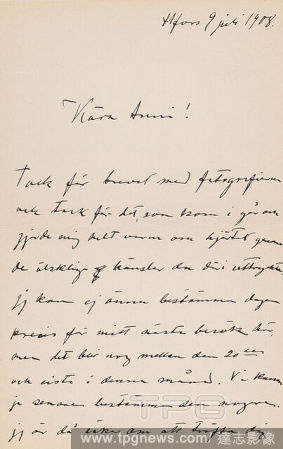 Hfors 9 juli 1908.
Kära Anni!
Tack för brevet med fotografierna
och tack för det, som kom i går och
gjorde mig helt varm om hjärtat genom
de älskliga känslor du däri uttryckte.
jag kan ej ännu bestämma dagen
precis för mitt nästa besök hos
men det blir nog mellan den 20de
och sista i denna månad. Vi kunna
ju senare bestämma den noga.
jag är då säker om att träffa dig
TPG
www.tpgnews.com 達志影像